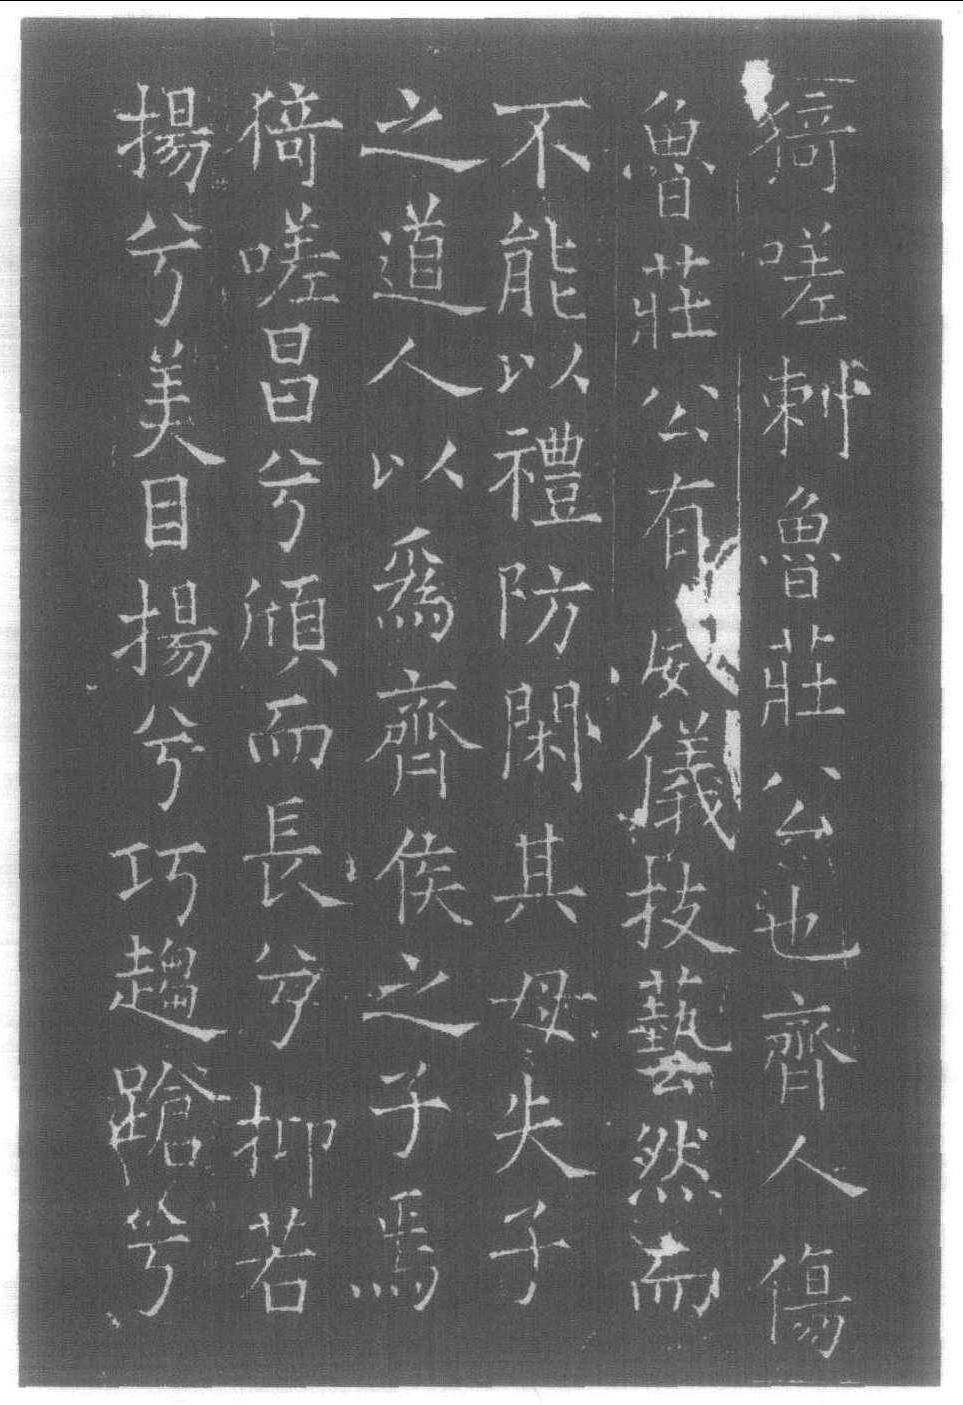 猗嗟刺魯莊公也齊人傷
魯莊公有威儀技藝然而
不能以禮防閑其母失子
之道人以爲齊侯之子焉
猗嗟昌兮頎而長兮抑若
揚兮美目揚兮巧趨蹌兮